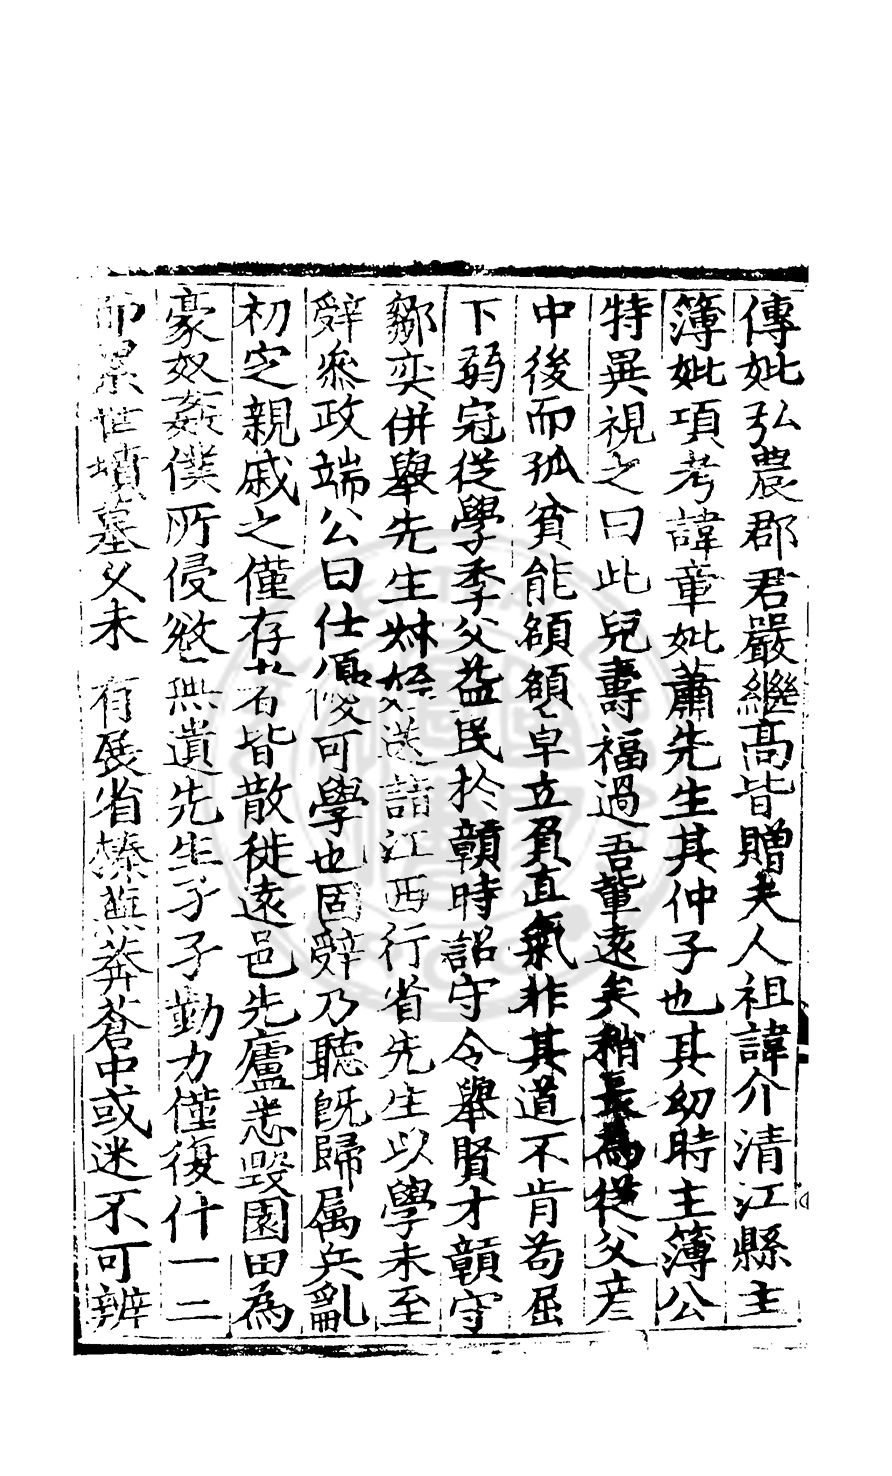 傳妣弘農郡君嚴繼高皆贈夫人祖諱介清江縣主
簿妣項考諱章妣蕭先生其仲子也其幼時主簿公
特異視之曰此兒壽福過吾輩遠矣稍長為從父彦
中後而孤貧能頟頟卓立負直氣非其道不肯苟屈
下弱冠從學季父益民於贛時詔守令舉賢才贛守
鄒奕併舉先生姪送詣江西行省先生以學未至
辤叅政端公曰仕優可學也固辤乃聽旣歸属兵亂
初定親戚之僅存者皆散徙遠邑先廬悉毀園田為
豪奴姦僕所侵攘無遺先生孑孑勤力僅復什一二
而累世墳墓久未有展省榛蕪莽蒼中或迷不可辨